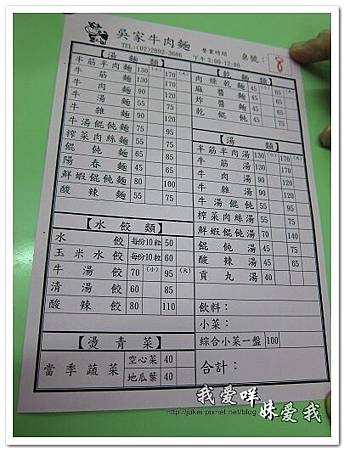 吳家牛肉麵
TEL:(02)2892-3686
營業時間
下午5:00-12:00
桌號：
8
【湯麵類】
半筋半肉麵 130 (小) 170 (大)
牛筋麵 130 170
牛肉麵
牛雜麵
牛湯餛飩麵 55 75
榨菜肉絲麵 55 75
餛飩麵 60 80
陽春麵 45 55
鮮蝦餛飩麵 80 100
酸辣麵 55 75
【水餃類】
水餃 每份10粒 50
玉米水餃 每份10粒 60
牛湯餃 70 (小) 95 (大)
清湯餃 60 80
酸辣餃 80 110
【燙青菜】
當季蔬菜
空心菜 40
地瓜葉 40
【乾麵類】
肉絲乾麵 45 65
麻醬麵 45 65
炸醬麵 45 65
乾餛飩 65
【湯類】
半筋半肉湯 130 (小) 170 (大)
牛筋湯 130 170
牛肉湯
牛雜湯
牛湯餛飩湯
榨菜肉絲湯 55 75
鮮蝦餛飩湯
餛飩湯
酸辣湯
貢丸湯 40
飲料：
小菜：
綜合小菜一盤 100
合計：
我愛咩
妹愛我
http://jakei.pixnet.net/blog